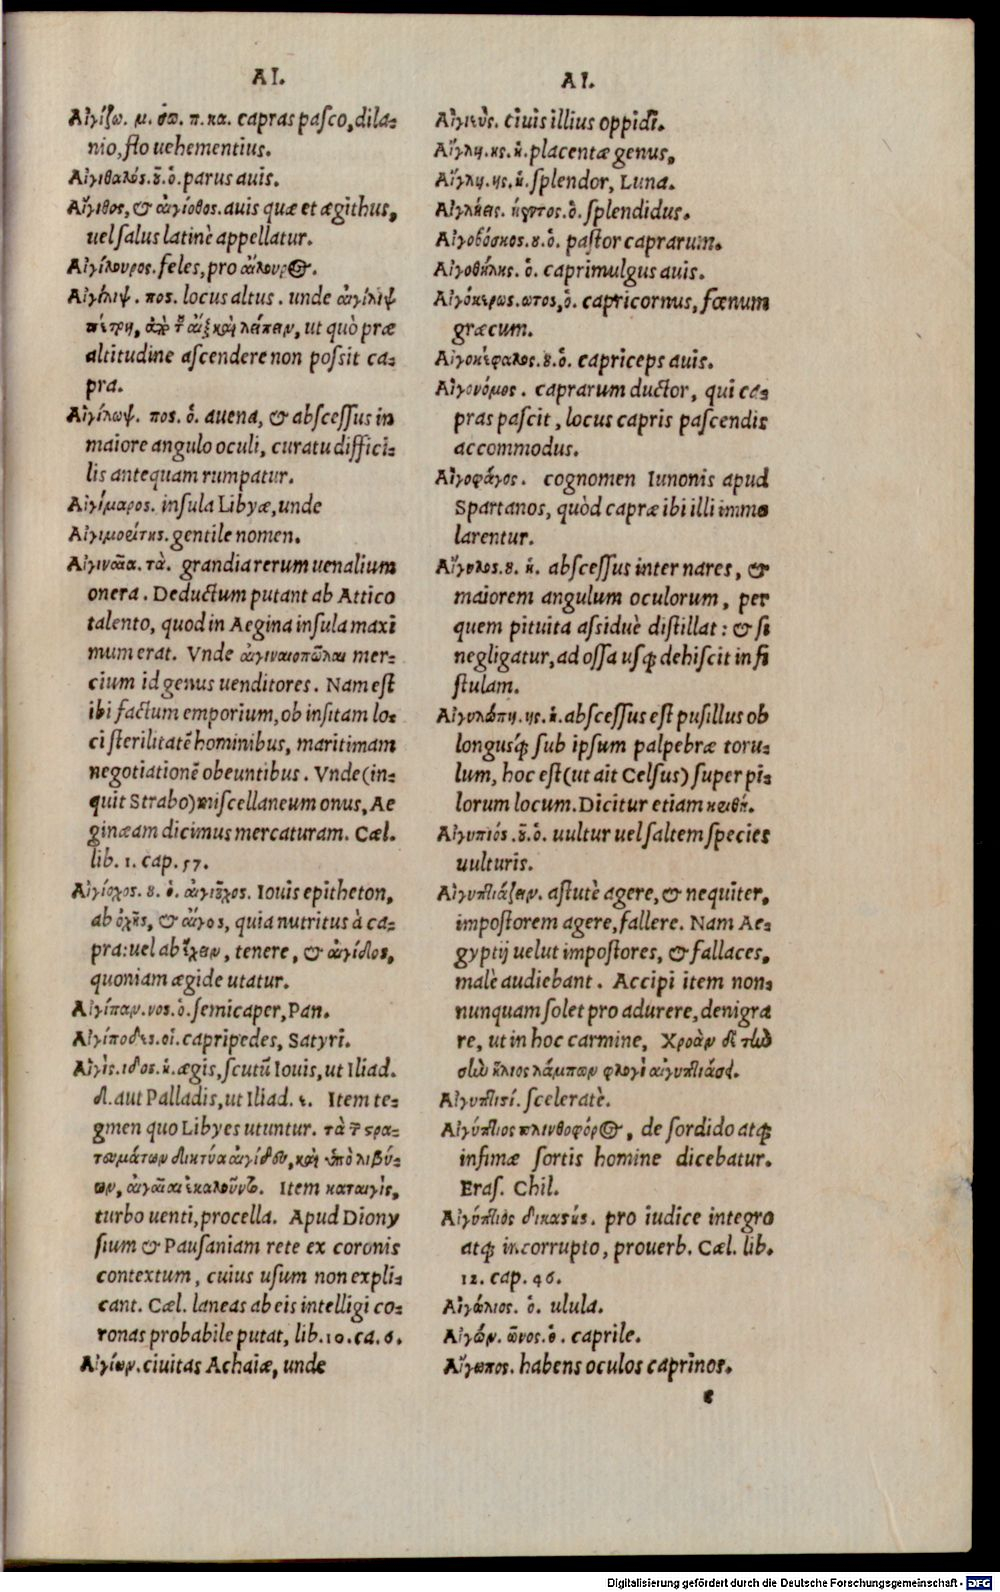 AI.
Αἰγίζω. μ. σω. π.κα. capras pasco, dila-
nio, flo uehementius.
Αἰγιθαλός.ȣ͂.ὁ.parus auis.
Αἴγιθος, & αἰγίοθος. auis quæ et ægithus,
uel salus latinè appellatur.
Αἰγίλουρος.feles, pro αἴλουρος.
Αἰγίλιψ. πος. locus altus. unde αἰγίλιψ
πέτρη, ἀπὸ τȣ͂ αἲξ καὶ λείπειν, ut quò præ
altitudine ascendere non possit ca-
pra.
Αἰγίλωψ. πος. ὁ. auena, & abscessus in
maiore angulo oculi, curatu diffici-
lis antequam rumpatur.
Αἰγίμαρος. insula Libyæ, unde
Αἰγιμορίτης. gentile nomen.
Αἰγιναῖα. τὰ. grandia rerum uenalium
onera. Deductum putant ab Attico
talento, quod in Aegina insula maxi
mum erat. Vnde αἰγιναιοπῶλαι mer-
cium id genus uenditores. Nam est
ibi factum emporium, ob insitam lo-
ci sterilitatē hominibus, maritimam
negotiationē obeuntibus. Vnde (in-
quit Strabo) miscellaneum onus, Ae
ginæam dicimus mercaturam. Cæl.
lib. 1. cap. 57.
Αἰγίοχος. ȣ. ὁ. αἰγιȣ͂χος. Iouis epitheton,
ab ὀχῆς, & αἶγος, quia nutritus à ca-
pra: uel ab ἔχειν, tenere, & αἰγίδος,
quoniam ægide utatur.
Αἰγίπαν.νος.ὁ.semicaper, Pan.
Αἰγίποδες.οἱ.capripedes, Satyri.
Αἰγὶς.ιδος.ἡ.ægis, scutū Iouis, ut Iliad.
δ. aut Palladis, ut Iliad. ε. Item te-
gmen quo Libyes utuntur. τὰ τῶν στρα-
τευμάτων δικτύα αἰγίδων, καὶ ὑπὸ λιβύ-
ων, αἰγαῖαι ἐκαλοῦντο. Item καταιγὶς,
turbo uenti, procella. Apud Diony
sium & Pausaniam rete ex coronis
contextum, cuius usum non expli-
cant. Cæl. laneas ab eis intelligi co-
ronas probabile putat, lib. 10. ca. 6.
Αἰγίων. ciuitas Achaiæ, unde
AI.
Αἰγιεύς. ciuis illius oppidi.
Αἴγλη.κς.ἡ.placentæ genus,
Αἴγλη.ης.ἡ.splendor, Luna.
Αἰγλήεις. ήεντος.ὁ. splendidus.
Αἰγοβόσκος.ȣ.ὁ. pastor caprarum.
Αἰγοθήλης. ὁ. caprimulgus auis.
Αἰγόκερως.ωτος, ὁ. capricornus, fœnum
græcum.
Αἰγοκέφαλος.ȣ.ὁ. capriceps auis.
Αἰγονόμος. caprarum ductor, qui ca-
pras pascit, locus capris pascendis
accommodus.
Αἰγοφάγος. cognomen Iunonis apud
Spartanos, quòd capræ ibi illi immo
larentur.
Αἴγυλος.ȣ. ἡ. abscessus inter nares, &
maiorem angulum oculorum, per
quem pituita assiduè distillat: & si
negligatur, ad ossa usq; dehiscit in fi
stulam.
Αἰγυλώπη.ης.ἡ.abscessus est pusillus ob
longusq́; sub ipsum palpebræ toru-
lum, hoc est (ut ait Celsus) super pi-
lorum locum. Dicitur etiam κριθή.
Αἰγυπιός.ȣ͂.ὁ. uultur uel saltem species
uulturis.
Αἰγυπτιάζειν. astutè agere, & nequiter,
impostorem agere, fallere. Nam Ae-
gyptij uelut impostores, & fallaces,
malè audiebant. Accipi item non-
nunquam solet pro adurere, denigra
re, ut in hoc carmine, Χροὰν δὲ τὴν
σὴν ἥλιος λάμπων φλογὶ αἰγυπτιάσει.
Αἰγυπτιστί. sceleratè.
Αἰγύπτιος πλινθοφόρος, de sordido atq;
infimæ sortis homine dicebatur.
Eras. Chil.
Αἰγύπτιος δικαστής. pro iudice integro
atq; incorrupto, prouerb. Cæl. lib.
12. cap. 46.
Αἰγώλιος. ὁ. ulula.
Αἰγών. ῶνος.ὁ. caprile.
Αἴγωπος. habens oculos caprinos.
e
Digitalisierung gefördert durch die Deutsche Forschungsgemeinschaft - DFG